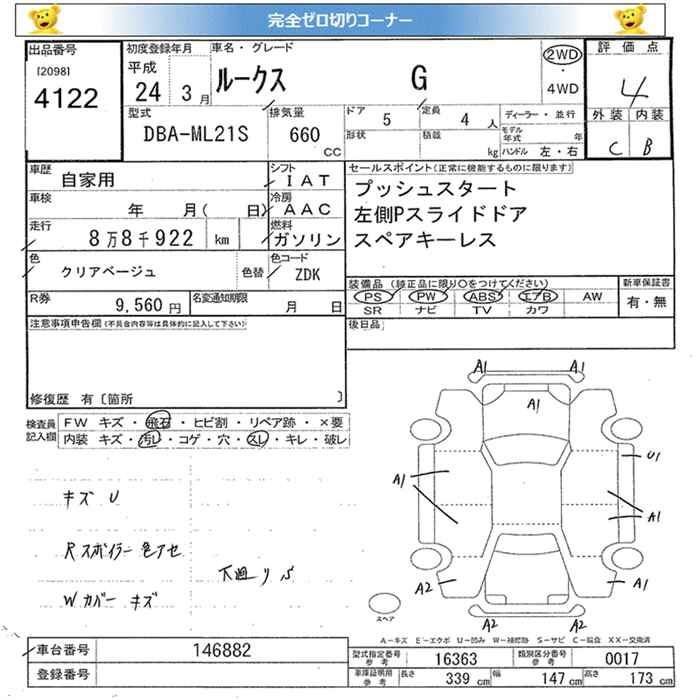 完全ゼロ切りコーナー
出品番号
[2098]
4122
初度登録年月
平成
24 3 月
車名・グレード
ルークス G
2WD
・
4WD
評価点
4
外装 内装
C B
型式
DBA-ML21S
排気量
660
CC
ドア 5
形状
定員 4 人
積載 kg
ディーラー・並行
モデル年式 年
ハンドル 左・右
車歴 自家用
シフト IAT
車検 年 月( 日)
冷房 AAC
走行 8万8千922 km
燃料 ガソリン
色 クリアベージュ
色替
色コード ZDK
R券 9,560 円
名変通知期限 月 日
セールスポイント(正常に機能するものに限ります)
プッシュスタート
左側Pスライドドア
スペアキーレス
装備品(純正品に限り○をつけてください)
PS PW ABS エアB AW
SR ナビ TV カワ
新車保証書
有・無
後日品
注意事項申告欄(不具合内容等は具体的に記入して下さい)
修復歴 有〔箇所 〕
検査員
記入欄
FW キズ・飛石・ヒビ割・リペア跡・×要
内装 キズ・汚レ・コゲ・穴・スレ・キレ・破レ
キズ U
Rスポイラー色アセ
下廻りS
Wカバー キズ
A1 A1
A1
U1
A1
A1
A2 A1
A2 A2
スペア
A－キズ E－エクボ U－凹み W－補修跡 S－サビ C－腐食 XX－交換済
車台番号 146882
登録番号
型式指定番号
参考
16363
類別区分番号
参考
0017
車庫証明用
参考
長さ 339 cm 幅 147 cm 高さ 173 cm